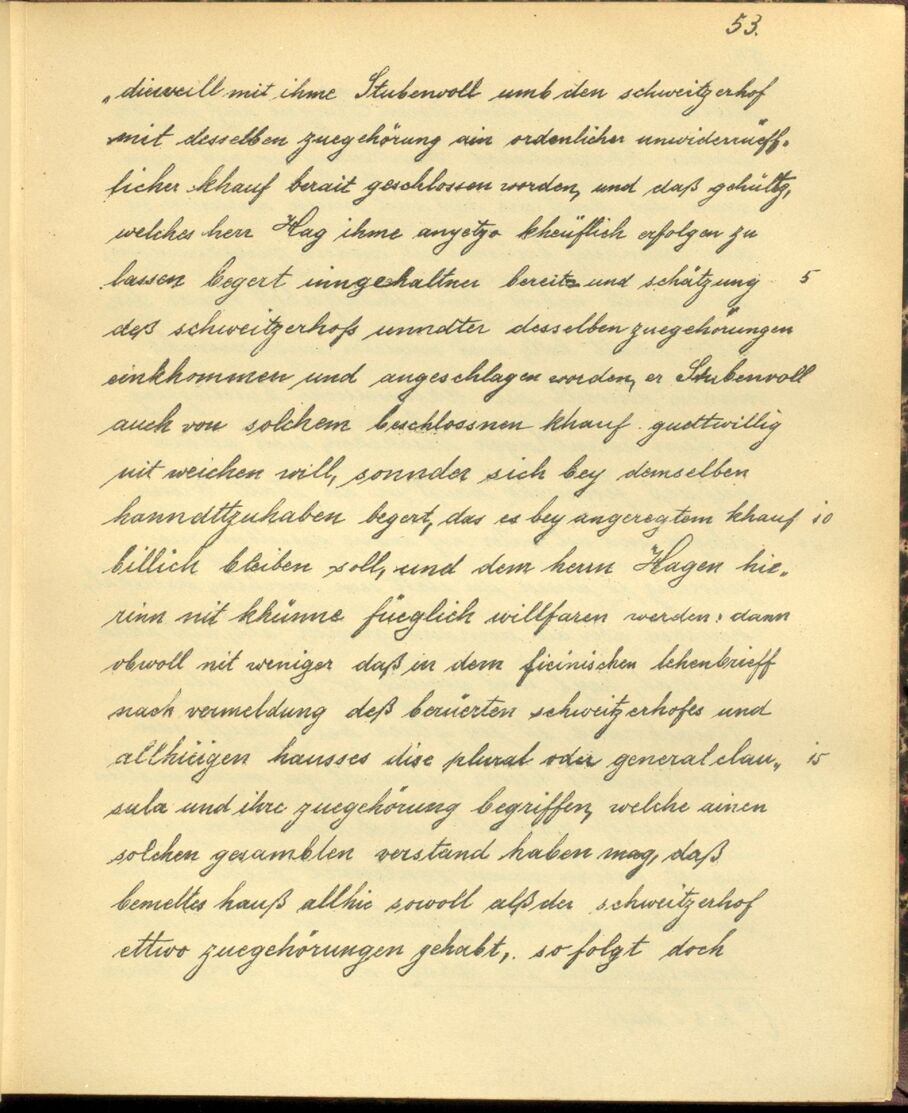 53.
„dieweill mit ihme Stubenvoll umb den schweitzerhof
mit desselben zuegehörung ain ordenlicher unwiderrueff„
licher khauf berait geschlossen worden, und daß gehültz,
welches herr Hag ihme anyetzo kheüflich erfolgen zu
lassen begert inngehaltner bereit und schätzung 5
deß schweitzerhofs unndter desselben zuegehörungen
einkhommen und angeschlagen worden, er Stubenvoll
auch von solchem beschlossnen khauf guettwillig
nit weichen will, sonnder sich bey demselben
hanndttzuhaben begert, das es bey angeregtem khauf 10
billich bleiben soll, und dem herrn Hagen hie„
rinn nit khünne füeglich willfaren werden: dann
obwoll nit weniger daß in dem ficinischen lehenbrieff
nach vermeldung deß berüerten schweitzerhofes und
allhieigen hausses dise plural oder general clau„ 15
sula und ihre zuegehörung begriffen, welche ainen
solchen gesambten verstand haben mag, daß
bemeltes hauß allhie sowoll alß der schweitzerhof
ettwo zuegehörungen gehabt, so folgt doch